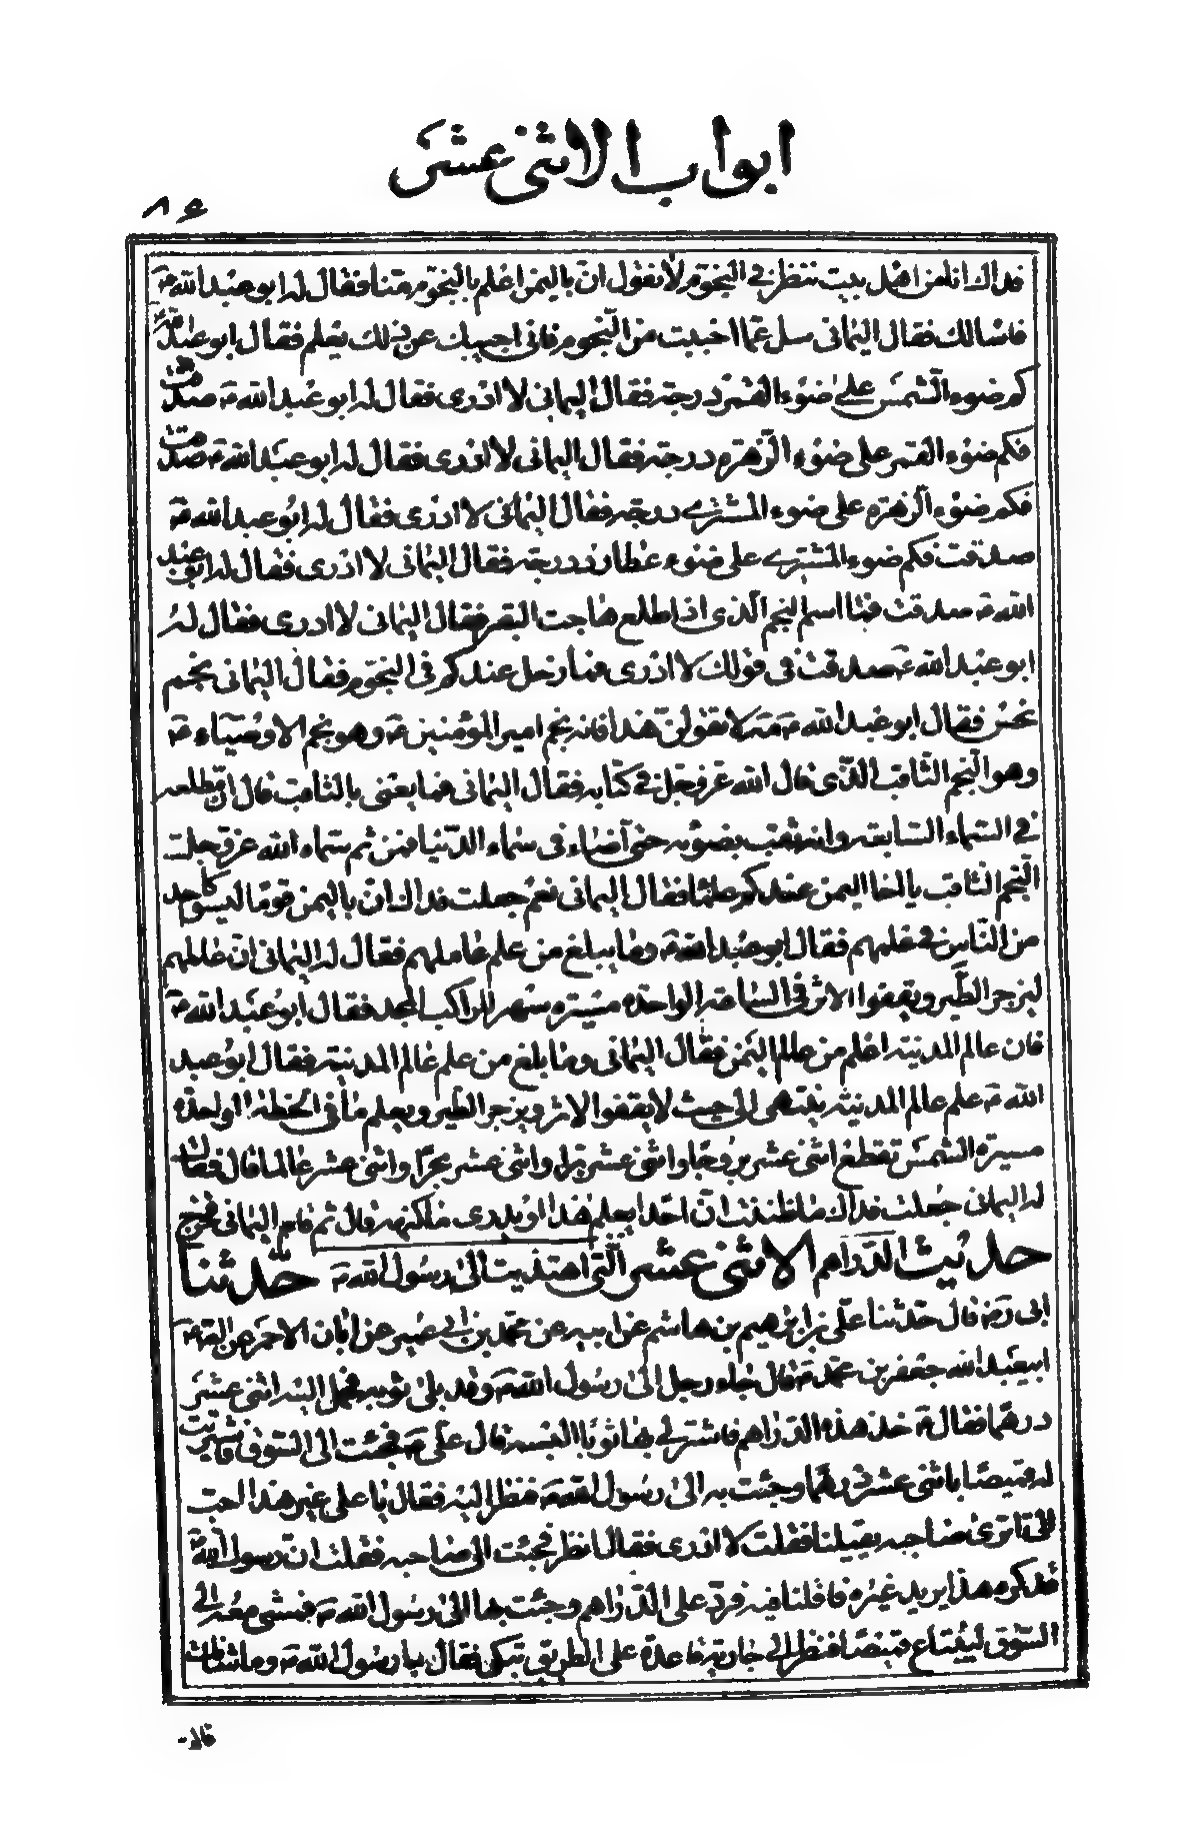 ابواب الاثنى عشر
٨٤
فداك انا من اهل بيت ننظر فى النجوم لا نقول ان باليمن اعلم بالنجوم منا فقال له ابو عبد الله ع
فاسالك فقال اليمانى سل عما احببت من النجوم فانى اجيبك عن ذلك بعلم فقال ابو عبد الله ع
كم ضوء الشمس على ضوء القمر درجة فقال اليمانى لا ادرى فقال له ابو عبد الله ع صدقت
فكم ضوء القمر على ضوء الزهرة درجة فقال اليمانى لا ادرى فقال له ابو عبد الله ع صدقت
فكم ضوء الزهرة على ضوء المشترى درجة فقال اليمانى لا ادرى فقال له ابو عبد الله ع
صدقت فكم ضوء المشترى على ضوء عطارد درجة فقال اليمانى لا ادرى فقال له ابو عبد
الله ع صدقت فما اسم النجم الذى اذا طلع هاجت البقر فقال اليمانى لا ادرى فقال له
ابو عبد الله ع صدقت فى قولك لا ادرى فما زحل عندكم فى النجوم فقال اليمانى نجم
نحس فقال ابو عبد الله ع مه لا تقولن هذا فانه نجم امير المؤمنين ع وهو نجم الاوصياء ع
وهو النجم الثاقب الذى قال الله عز وجل فى كتابه فقال اليمانى فما يعنى بالثاقب قال ان مطلعه
فى السماء السابعة وانه ثقب بضوئه حتى اضاء فى سماء الدنيا فمن ثم سماه الله عز وجل
النجم الثاقب يا اخا اليمن عندكم علماء فقال اليمانى نعم جعلت فداك ان باليمن قوما ليسوا كاحد
من الناس فى علمهم فقال ابو عبد الله ع وما يبلغ من علم عاملهم فقال له اليمانى ان عالمهم
ليزجر الطير ويقفوا الاثر فى الساعة الواحدة مسيرة شهر للراكب المجد فقال ابو عبد الله ع
فان عالم المدينة اعلم من عالم اليمن فقال اليمانى وما بلغ من علم عالم المدينة فقال ابو عبد
الله ع علم عالم المدينة ينتهى الى حيث لا يقفوا الاثر ويزجر الطير ويعلم ما فى اللحظة الواحدة
مسيرة الشمس تقطع اثنى عشر برجا واثنى عشر برا واثنى عشر بحرا واثنى عشر عالما قال فقال
له اليمانى جعلت فداك ما ظننت ان احدا يعلم هذا او يدرى ما كنهه قال ثم قام اليمانى فخرج
حديث الدراهم الاثنى عشر التى اهتديت الى رسول الله ص حدثنا
ابى رض قال حدثنا على بن ابرهيم بن هاشم عن ابيه عن محمد بن ابى عمير عن ابان الاحمر عن
ابيعبد الله جعفر بن محمد ع قال جاء رجل الى رسول الله ص وقد بلى ثوبه فحمل اليه اثنى عشر
درهما فقال ص خذ هذه الدراهم فاشتر لى بها ثوبا البسه قال على ع فجئت الى السوق فاشتريت
له قميصا باثنى عشر درهما وجئت به الى رسول الله ص فنظر اليه فقال يا على غير هذا احب
الى اترى صاحبه يقيلنا فقلت لا ادرى فقال انظر فجئت الى صاحبه فقلت ان رسول الله ص
قد كره هذا يريد غيره فاقلنا فيه فرد على الدراهم وجئت بها الى رسول الله ص فمشى معه الى
السوق ليبتاع قميصا فنظر الى جارية قاعدة على الطريق تبكى فقال يا رسول الله ص وما شانك
قالت